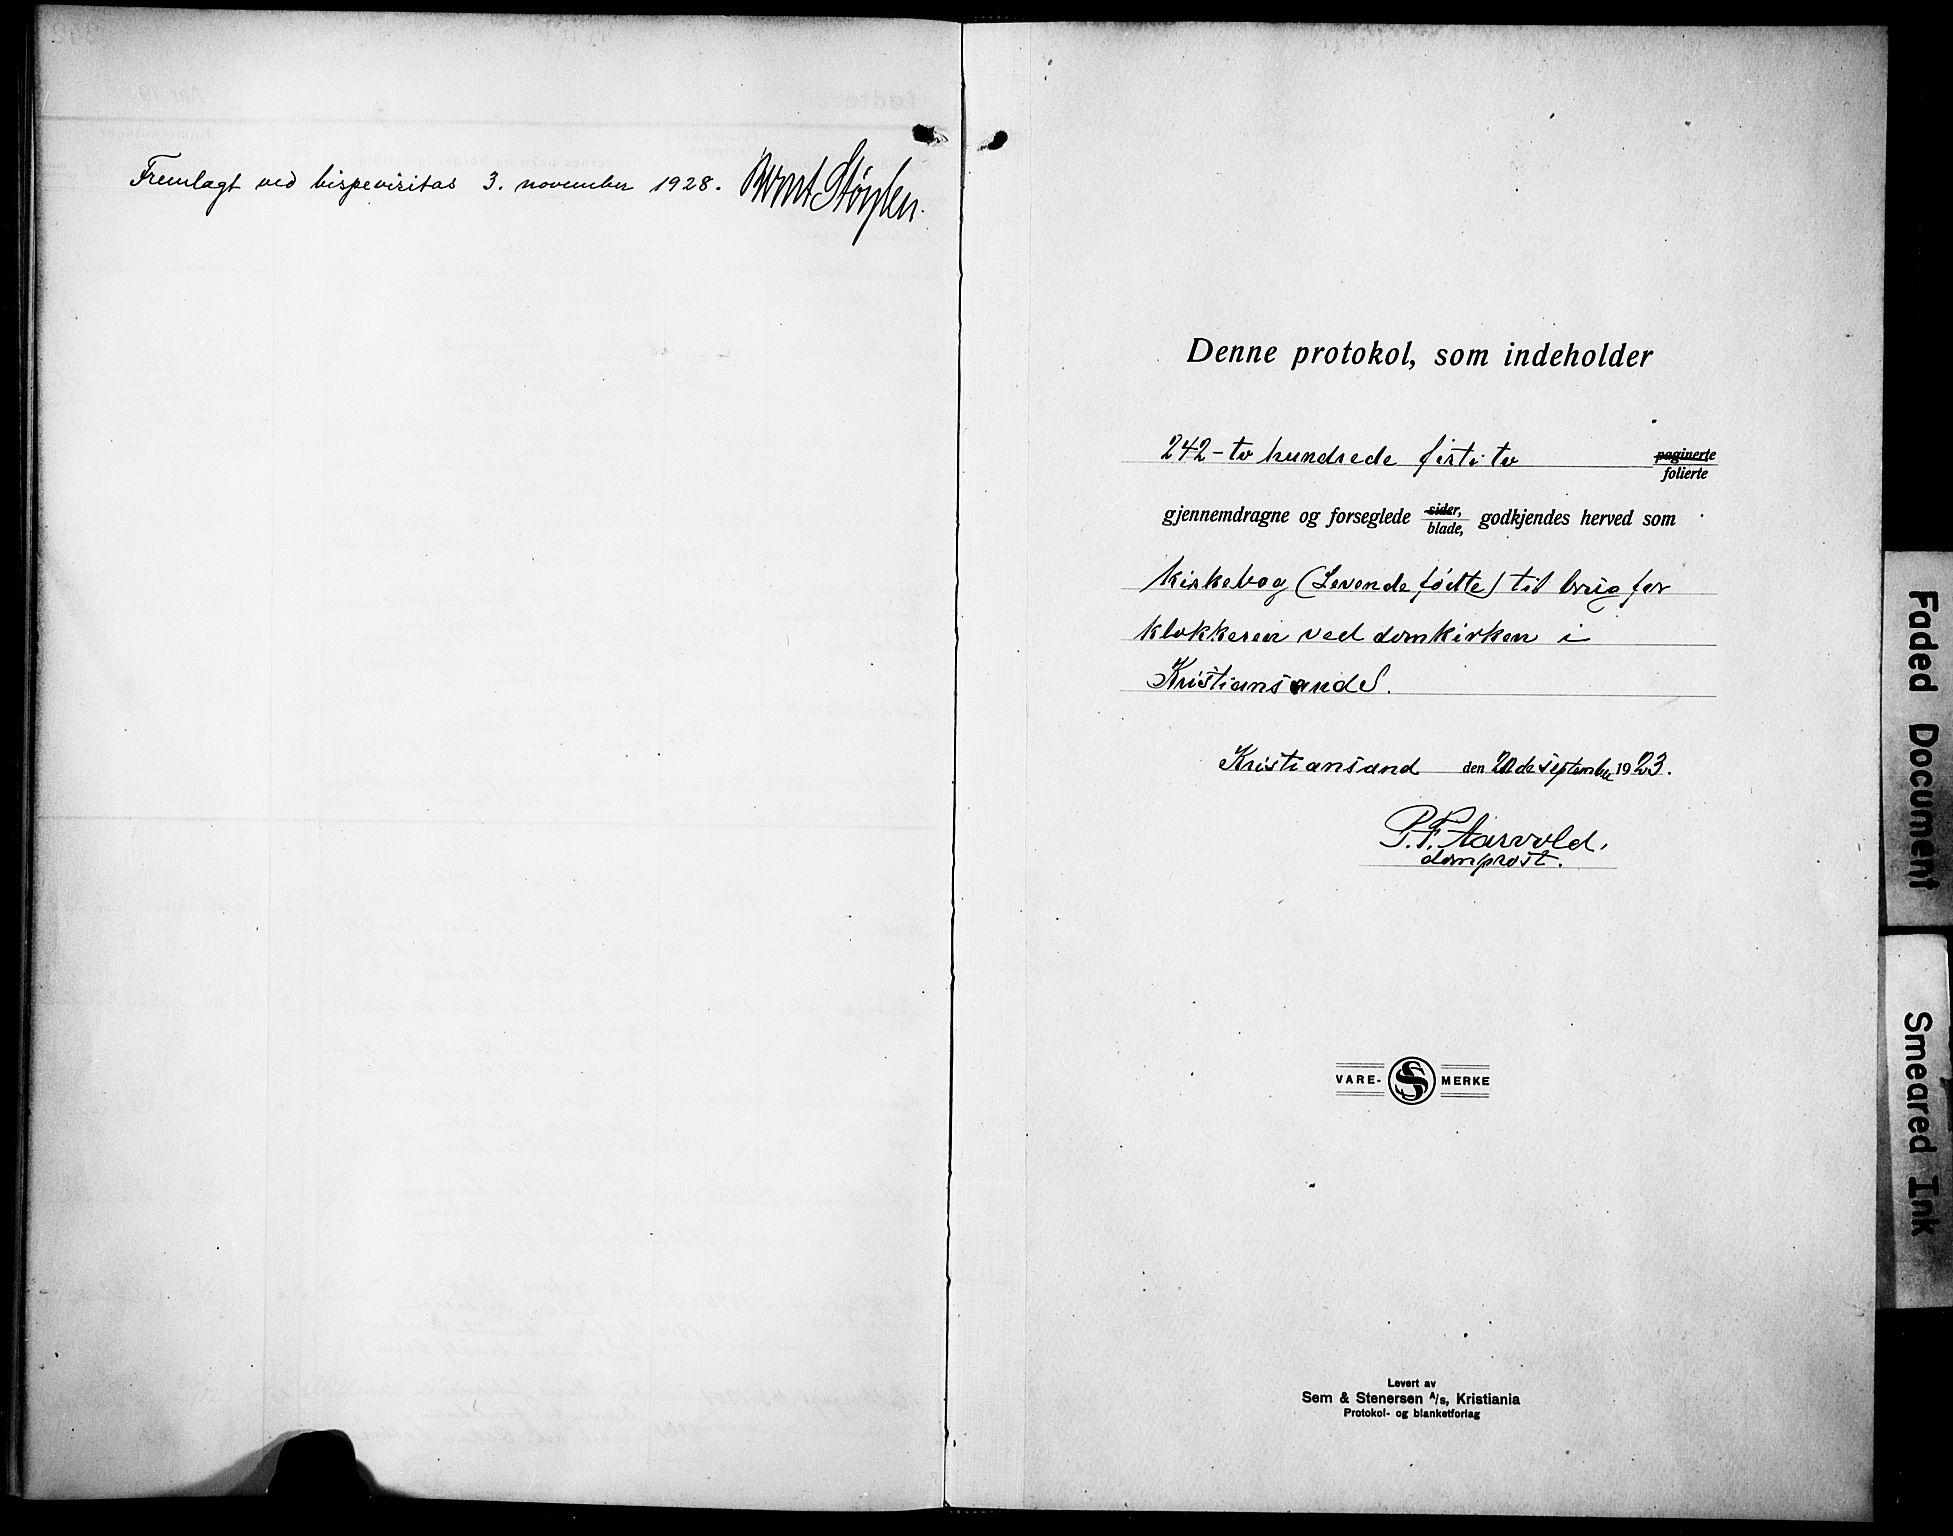 Fremlagt ved bispevisitas 3. november 1928. Bernt Støylen.
Denne protokol, som indeholder
242 - to hundrede firti to paginerte
folierte
gjennemdragne og forseglede sider, godkjendes herved som
blade,
kirkebog (Levende fødte) til brug for
klokkeren ved domkirken i
Kristiansand S.
Kristiansand den september 1923.
P. F. Aarvold.
domprost.
VARE- S MERKE
Levert av
Sem & Stenersen A/s, Kristiania
Protokol- og blanketforlag
Faded Document
Smeared Ink